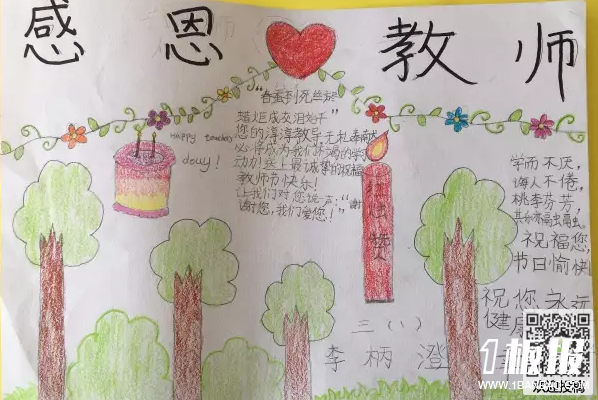 感恩教师
Happy teachers
day!
"春蚕到死丝方
蜡炬成灰泪始干"
您的谆谆教导 无私奉献
必将成为我们
动力!送上最诚挚的祝福
教师节快乐!
让我们对您说一声:"谢
谢您,我们爱您!"
烛赞
学而不厌,
诲人不倦,
桃李芬芳,
其乐亦融融。
祝福您,
节日愉快
祝您永远
健康
三(1)
李柄澄
1板报
WWW.1BANBAO.COM
欢迎投稿